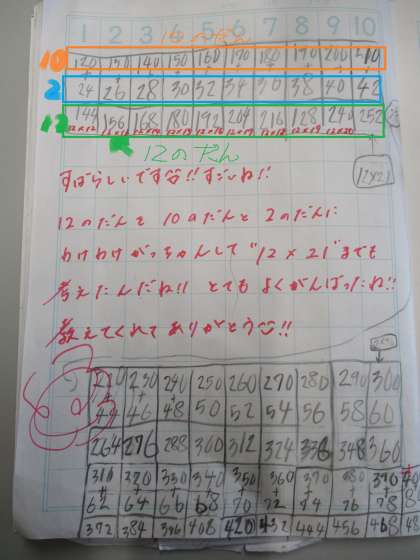 1 2 3 4 5 6 7 8 9 10
10のだん
10 120 130 140 150 160 170 180 190 200 210
2 24 26 28 30 32 34 36 38 40 42
12 144 156 168 180 192 204 216 128 240 252
12×12 12×14 12×15 12×16 12×17 12×18 12×19 12×20
12のだん
12×21
すばらしいです!!すごいね!!
12のだんを10のだんと2のだんに
わけわけがっちゃんして"12×21"までも
考えたんだね!! とてもよくがんばったね!!
教えてくれてありがとう!!
220 230 240 250 260 270 280 290 300
44 46 48 50 52 54 56 58 60
264 276 288 300 312 324 336 348 360
310 320 330 340 350 360 370 380 390
62 64 66 68 70 72 74 76 78
372 384 396 408 420 432 444 456 468